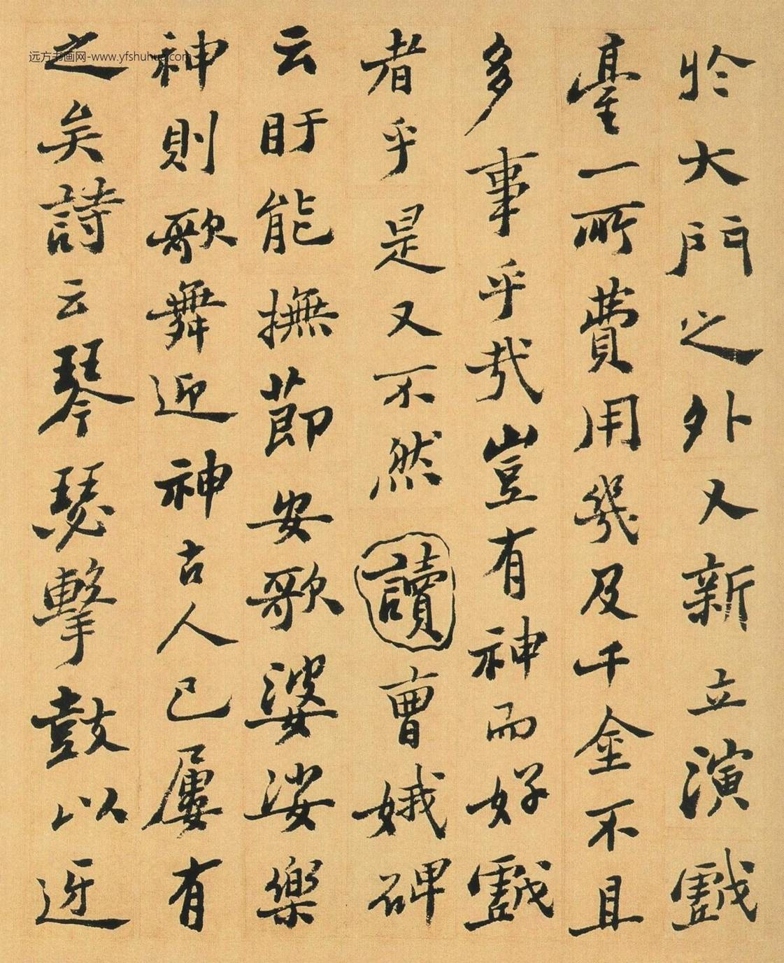 於大門之外又新立演戲
臺一所費用幾及千金不且
多事乎哉豈有神而好戲
者乎是又不然讀曹娥碑
云盱能撫節安歌婆娑樂
神則歌舞迎神古人已屢有
之矣詩云琴瑟擊鼓以迓
远方书画网-www.yfshuhua.com